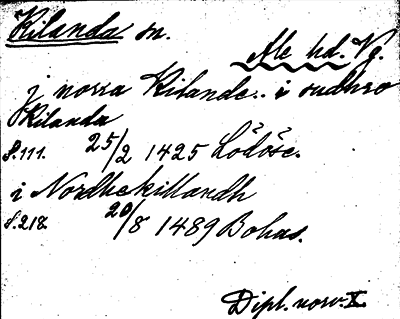 Kilanda sn.
Ale hd. Vg.
j norra Kilande.. i sudhro
Kilanda
s. 111. 25/2 1425 Lödöse.
i Nordhekillandh
s. 218 20/8 1489 Bohus.
Dipl. norv. X.